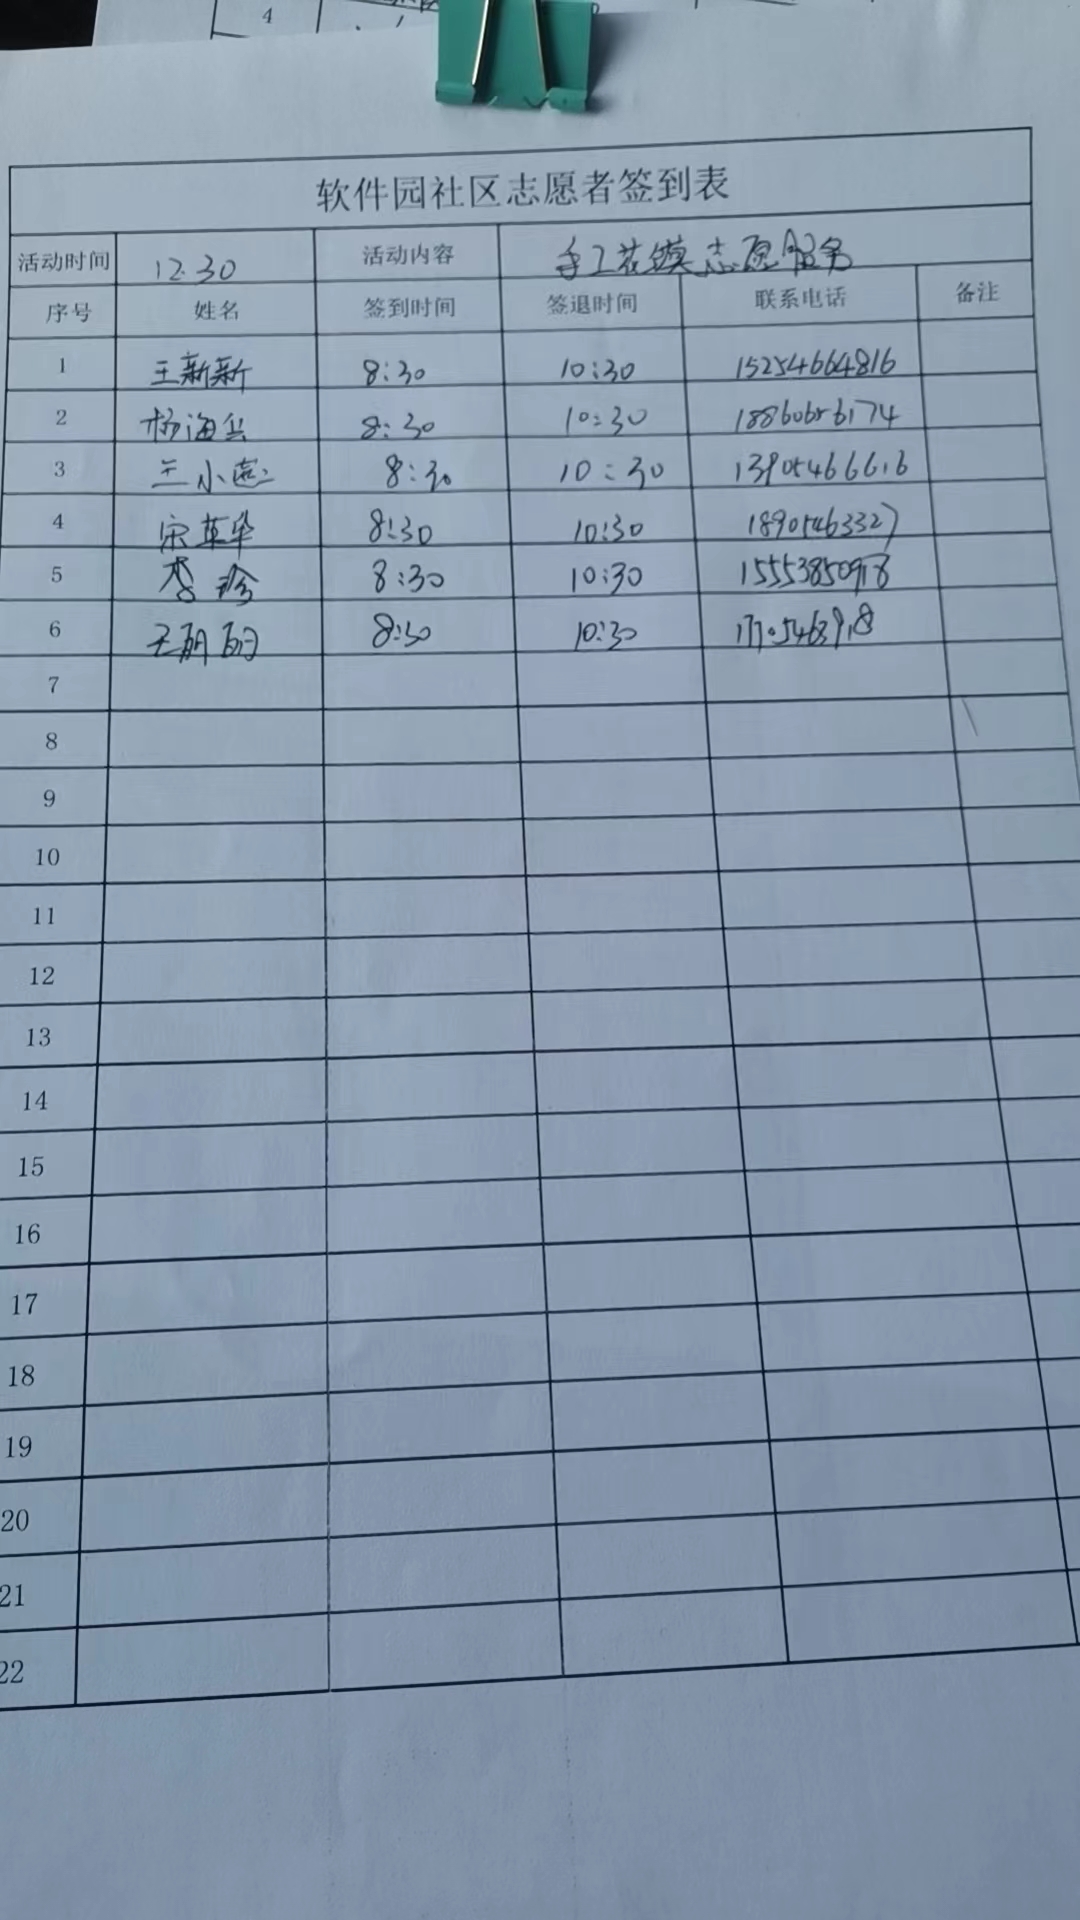 4
软件园社区志愿者签到表
活动时间 12.30 活动内容 手工花馍志愿服务
序号 姓名 签到时间 签退时间 联系电话 备注
1 王新新 8:30 10:30 15254664816
2 杨海兵 8:30 10:30
3 王小燕 8:30 10:30 13905466616
4 宋英华 8:30 10:30 18905463327
5 李珍 8:30 10:30 15553850918
6 王丽丽 8:30 10:30 17705463918
7
8
9
10
11
12
13
14
15
16
17
18
19
20
21
22